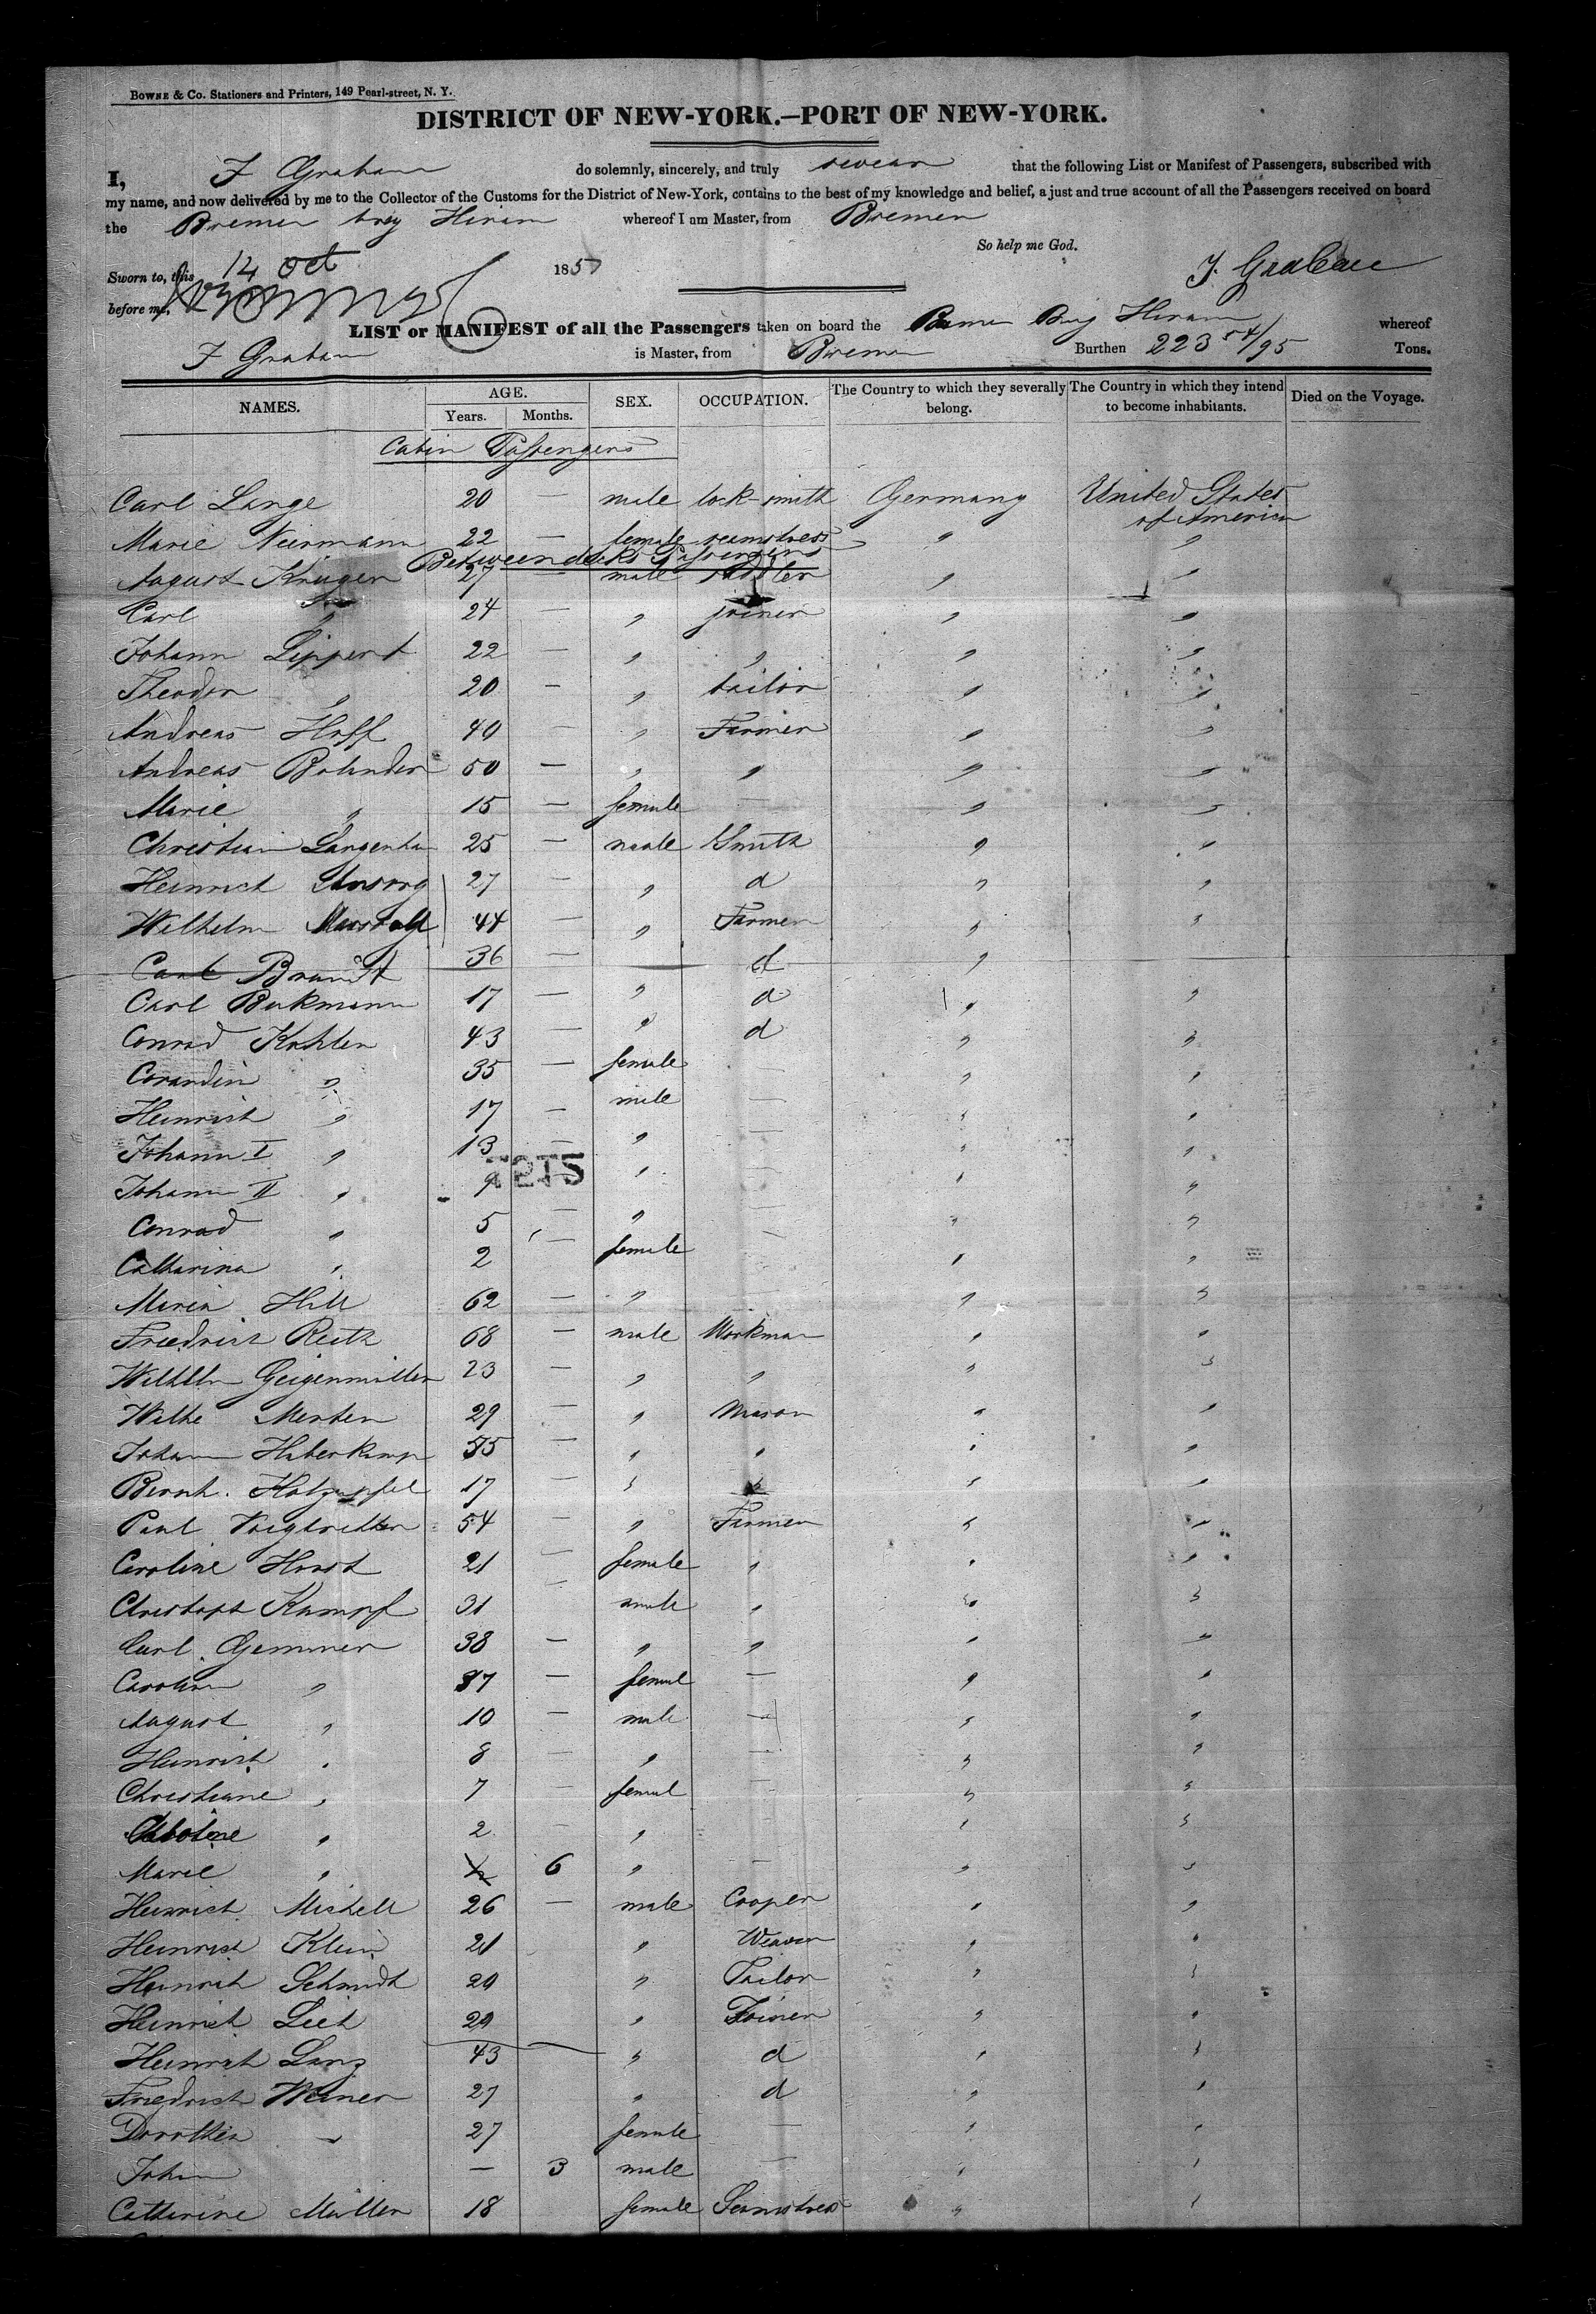 BOWNE & Co. Stationers and Printers, 149 Pearl-street, N. Y.
DISTRICT OF NEW-YORK.—PORT OF NEW-YORK.
I, F Graham do solemnly, sincerely, and truly swear that the following List or Manifest of Passengers, subscribed with
my name, and now delivered by me to the Collector of the Customs for the District of New-York, contains to the best of my knowledge and belief, a just and true account of all the Passengers received on board
the Bremer brig Hiram whereof I am Master, from Bremen
So help me God.
Sworn to, this 14 Oct 185
before me,
LIST or MANIFEST of all the Passengers taken on board the Bremer Brig Hiram whereof
F Graham is Master, from Bremen Burthen 223 54/95 Tons.
NAMES. AGE. Years. Months. SEX. OCCUPATION. The Country to which they severally belong. The Country in which they intend to become inhabitants. Died on the Voyage.
Cabin Passengers
Carl Lange 20 — male lock-smith Germany United States of America
Marie Niermann 22 — female seamstress " "
Betweendecks Passengers
August Krüger 27 — male " "
Carl " 24 — " joiner " "
Johann Lippert 22 — " " " "
Theodor " 20 — " tailor " "
Andreas Hoff 40 — " Farmer " "
Andreas Bolander 50 — " " " "
Marie " 15 — female — " "
Christian 25 — male Smith " "
Heinrich 27 — " d " "
Wilhelm 44 — " Farmer " "
Carl Brandt 36 — d "
Carl Bekmann 17 — " d " "
Conrad Kohler 43 — " d " "
" 35 — female — " "
Heinrich " 17 — male — " "
Johann I " 13 — " — " "
Johann II " 9 — " — " "
T2T5
Conrad " 5 — " — " "
Catharina " 2 — female " "
Maria Hill 62 — " " "
Friedrich Reitz 68 — male Workman " "
Wilhelm Geigenmüller 23 — " " " "
Wilhe Merten 29 — " Mason " "
Johann Haberkamp — " " " "
Bernh. Holzapfel 17 — " " "
Paul 54 — " Farmer " "
Caroline Horst 21 — female " " "
Christoph Kampf 31 male " " "
Carl Gemmer 38 — " " " "
Carolin " 37 — femal — " "
August " 10 — male — " "
Heinrich " 8 — " — " "
Christiane " 7 — femal — " "
" 2 — " " "
Marie " 6 " — " "
Heinrich Michell 26 — male Cooper " "
Heinrich Klein 21 " Weaver " "
Heinrich Schmidt 20 " Tailor " "
Heinrich " Joiner " "
Heinrich Lang 43 " d " "
Friedrich Weiner 27 " d " "
Dorothea " 27 female — " "
Johan — 3 male — " "
Catharine Müller 18 female Seamstress " "